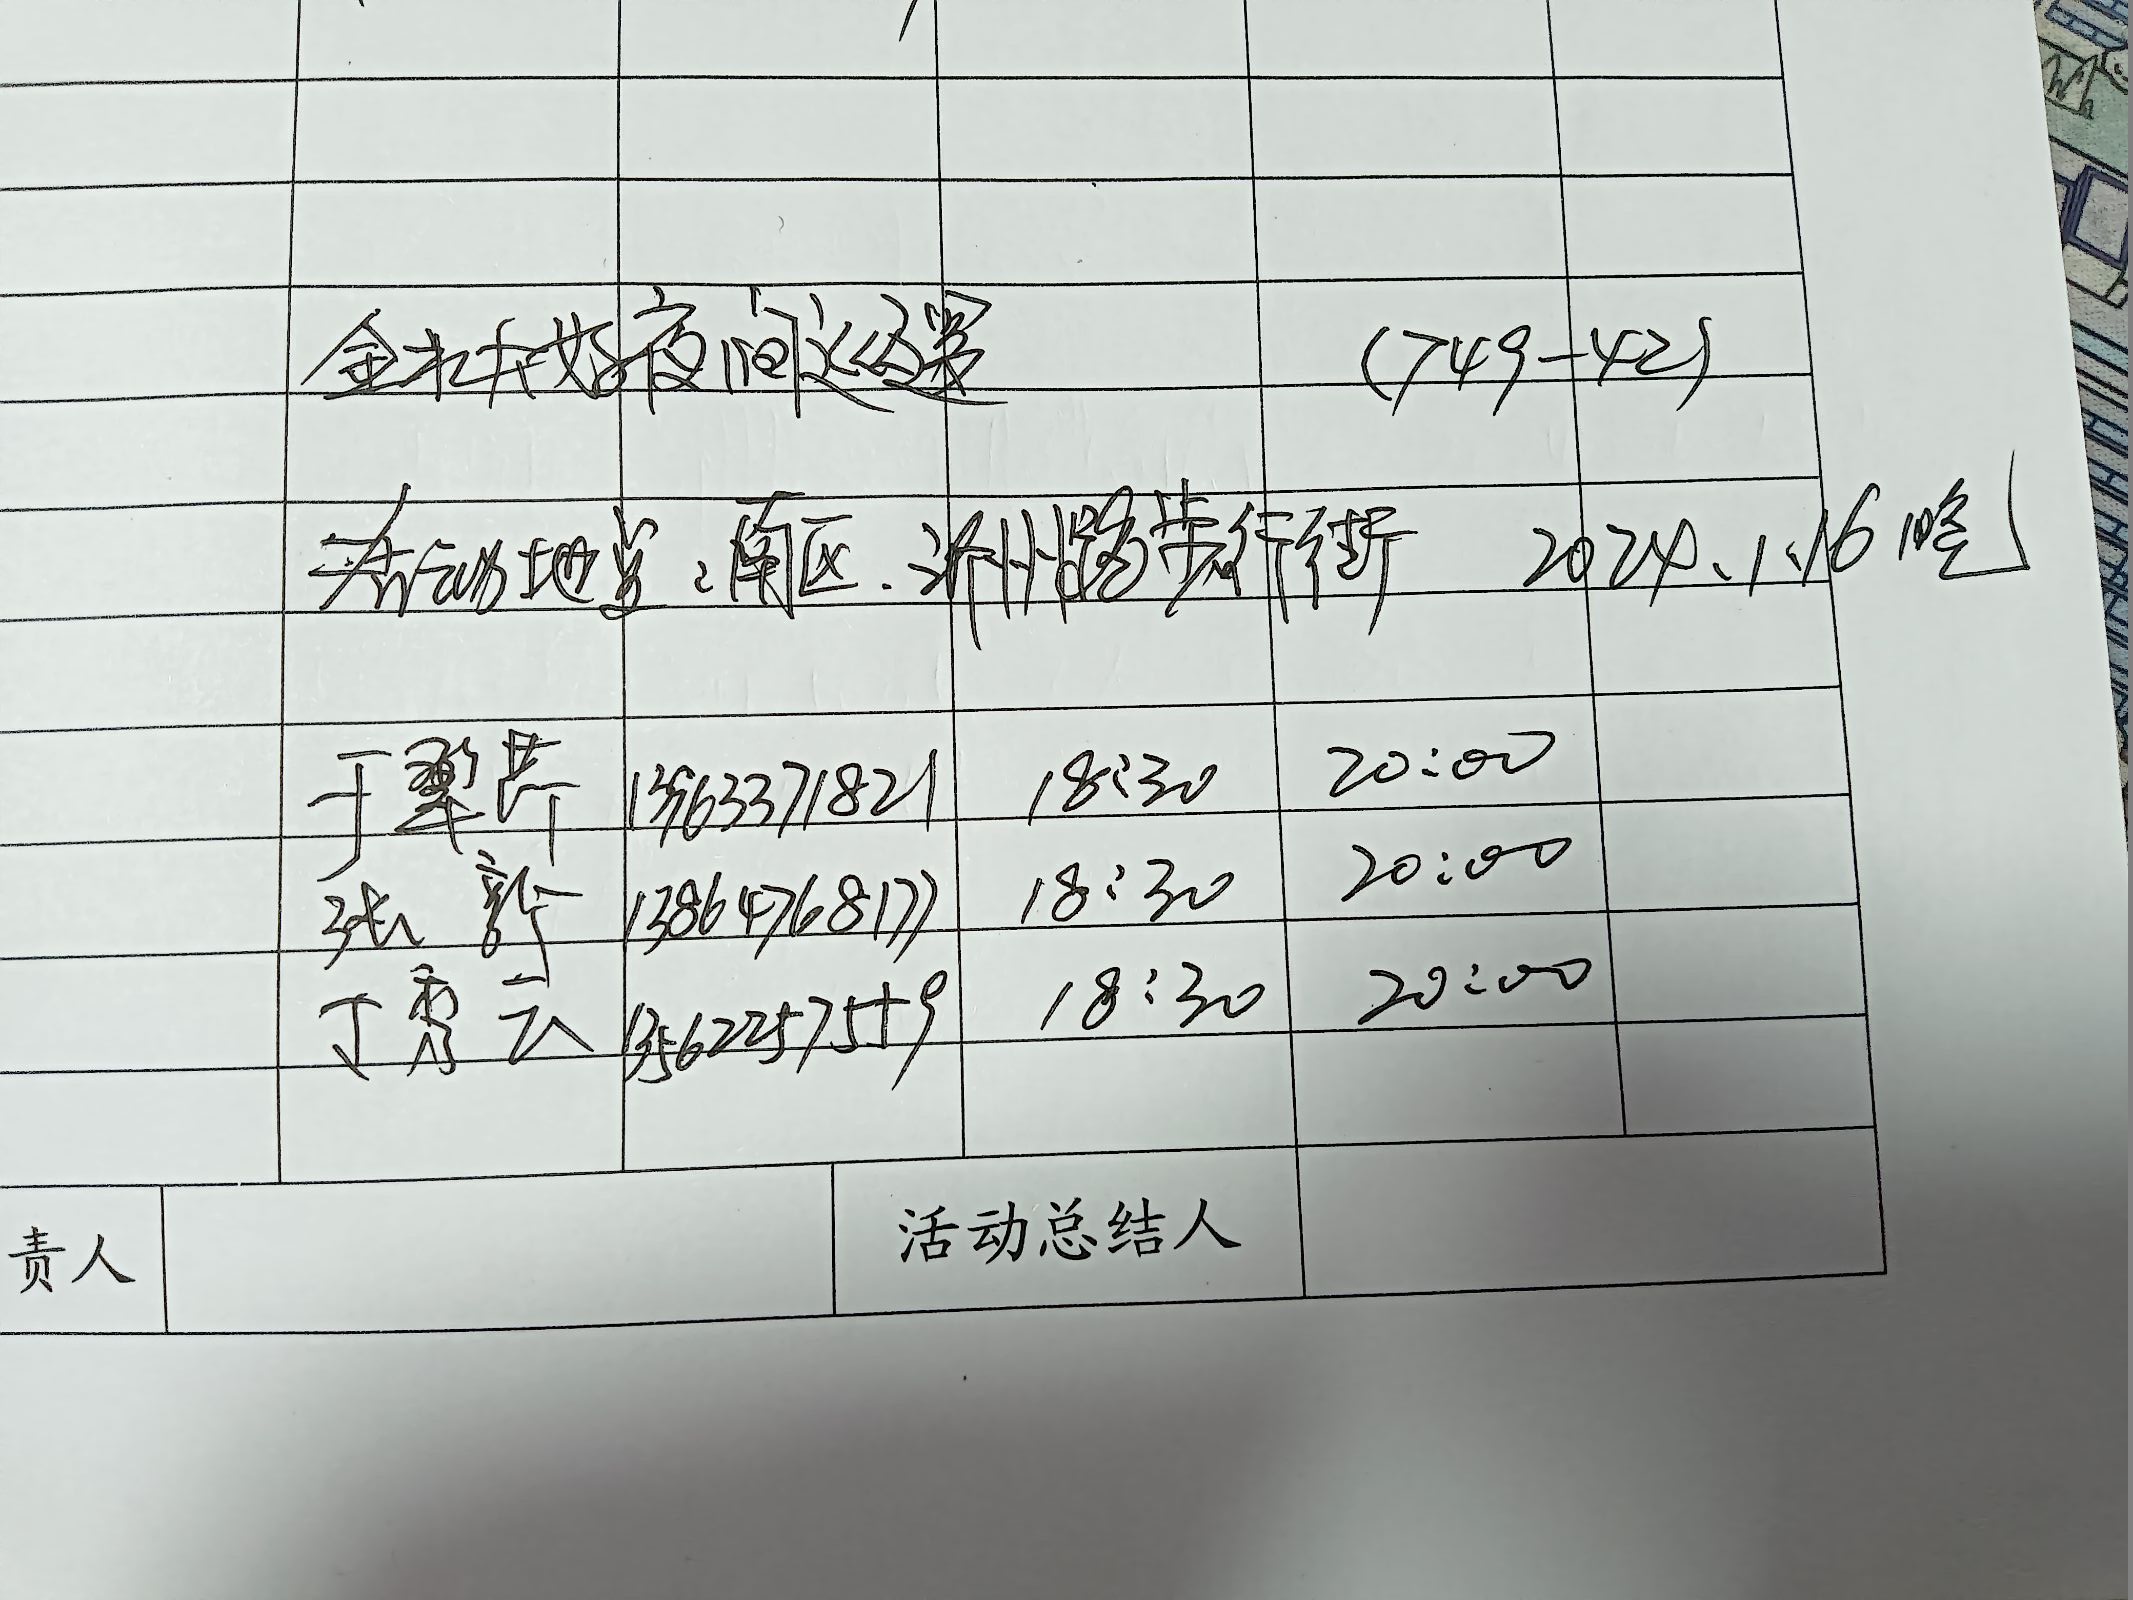 夜间巡逻 (749-42)
活动地点:南区.沂州路步行街 2024.1.16晚
于翠芹 13963371821 18:30 20:00
张新 13864768177 18:30 20:00
丁秀云 13562257559 18:30 20:00
责人 活动总结人